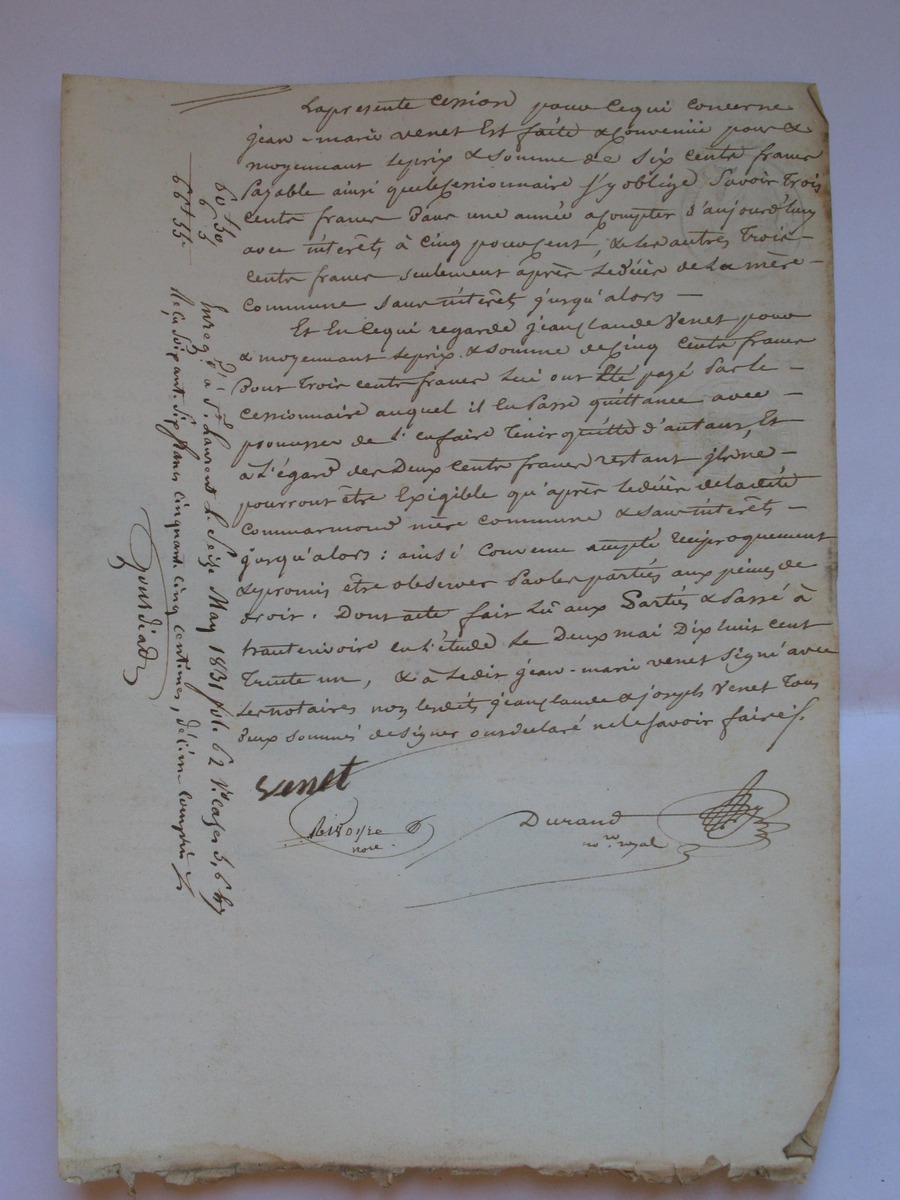 La presente cession pour ce qui concerne
jean-marie venet Est faite & Convenüe pour &
moyennant le prix & somme de Six cents francs
payable ainsi que le Cessionnaire s'y oblige Savoir Trois
cents francs dans une année a Compter d'aujourd'huy
avec interêts à cinq pour Cent, & les autres Trois
cents francs seulement après le décès de La mère
commune sans interêts jusqu'alors —
Et En ce qui regarde jean Claude Venet pour
& moyennant le prix & somme de Cinq Cents francs
Dont Trois cents francs Lui ont Eté payé par le
cessionnaire auquel il En Passe quittance avec
promesse de L'en faire Tenir quitte d'autant, Et
à L'égard des Deux Cents francs restant ils ne
pourront être Exigible qu'après le décès de ladite
Commarmond mère commune & sans interêts
jusqu'alors : ainsi Convenu accepté reciproquement
& promis être observer par les parties aux peines de
droit. Dont acte fait Lû aux Parties & Passé à
hauterivoire en l'étude Le Deux mai Dix huit cent
Trente un, & à Ledit jean-marie venet Signé avec
Les notaires non lesdits jean Claude & joseph Venet Tous
deux sommés de signer ont declaré ne le Savoir faire.
venet
note
Durand
no.re royal
60f 50
6 5
66f 55
Enreg.é à S.t Laurent L. Seize May 1831 fol. 62 V.o cases 5, 6 &7
Reçu Soixante Six francs Cinquante cinq centimes, décime compris